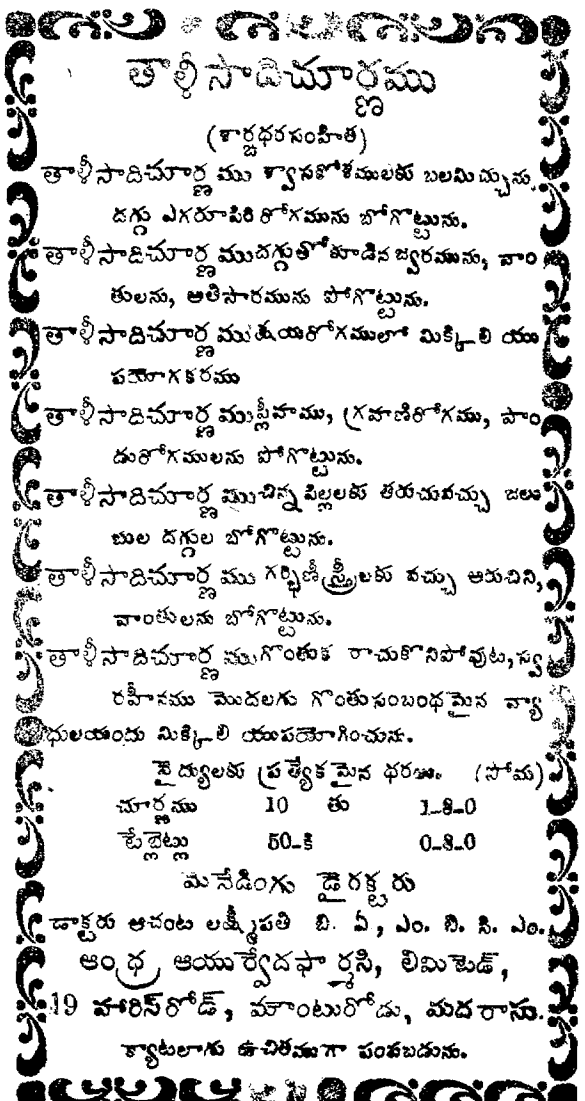 తాళీసాదిచూర్ణము
(శార్ఙ్గధరసంహిత)
తాళీసాదిచూర్ణము శ్వాసకోశములకు బలమిచ్చును.
దగ్గు ఎగరూపిరి రోగమును బోగొట్టును.
తాళీసాదిచూర్ణముదగ్గుతోకూడిన జ్వరమును, వాం
తులను, అతిసారమును పోగొట్టును.
తాళీసాదిచూర్ణముక్షయరోగములో మిక్కిలి యు
పయోగకరము
తాళీసాదిచూర్ణముప్లీహము, గ్రహణిరోగము, పాం
డురోగములను పోగొట్టును.
తాళీసాదిచూర్ణముచిన్నపిల్లలకు తరుచువచ్చు జలు
బుల దగ్గుల బోగొట్టును.
తాళీసాదిచూర్ణము గర్భిణీస్త్రీలకు వచ్చు అరుచిని,
వాంతులను బోగొట్టును.
తాళీసాదిచూర్ణముగొంతుక రాచుకొనిపోవుట,స్వ
రహీనము మొదలగు గొంతుసంబంధమైన వ్యా
ధులయందు మిక్కిలి యుపయోగించును.
వైద్యులకు ప్రత్యేకమైన ధరలు. (సోమ)
చూర్ణము 10 తు 1-8-0
టేబ్లెట్లు 50-కి 0-8-0
మేనేడింగు డైరక్టరు
డాక్టరు ఆచంట లక్ష్మీపతి బి. ఏ, ఎం. బి. సి. ఎం.
ఆంధ్ర ఆయుర్వేదఫార్మసి, లిమిటెడ్,
19 హారిస్‌రోడ్, మౌంటురోడు, మదరాసు.
క్యాటలాగు ఉచితముగా పంపబడును.